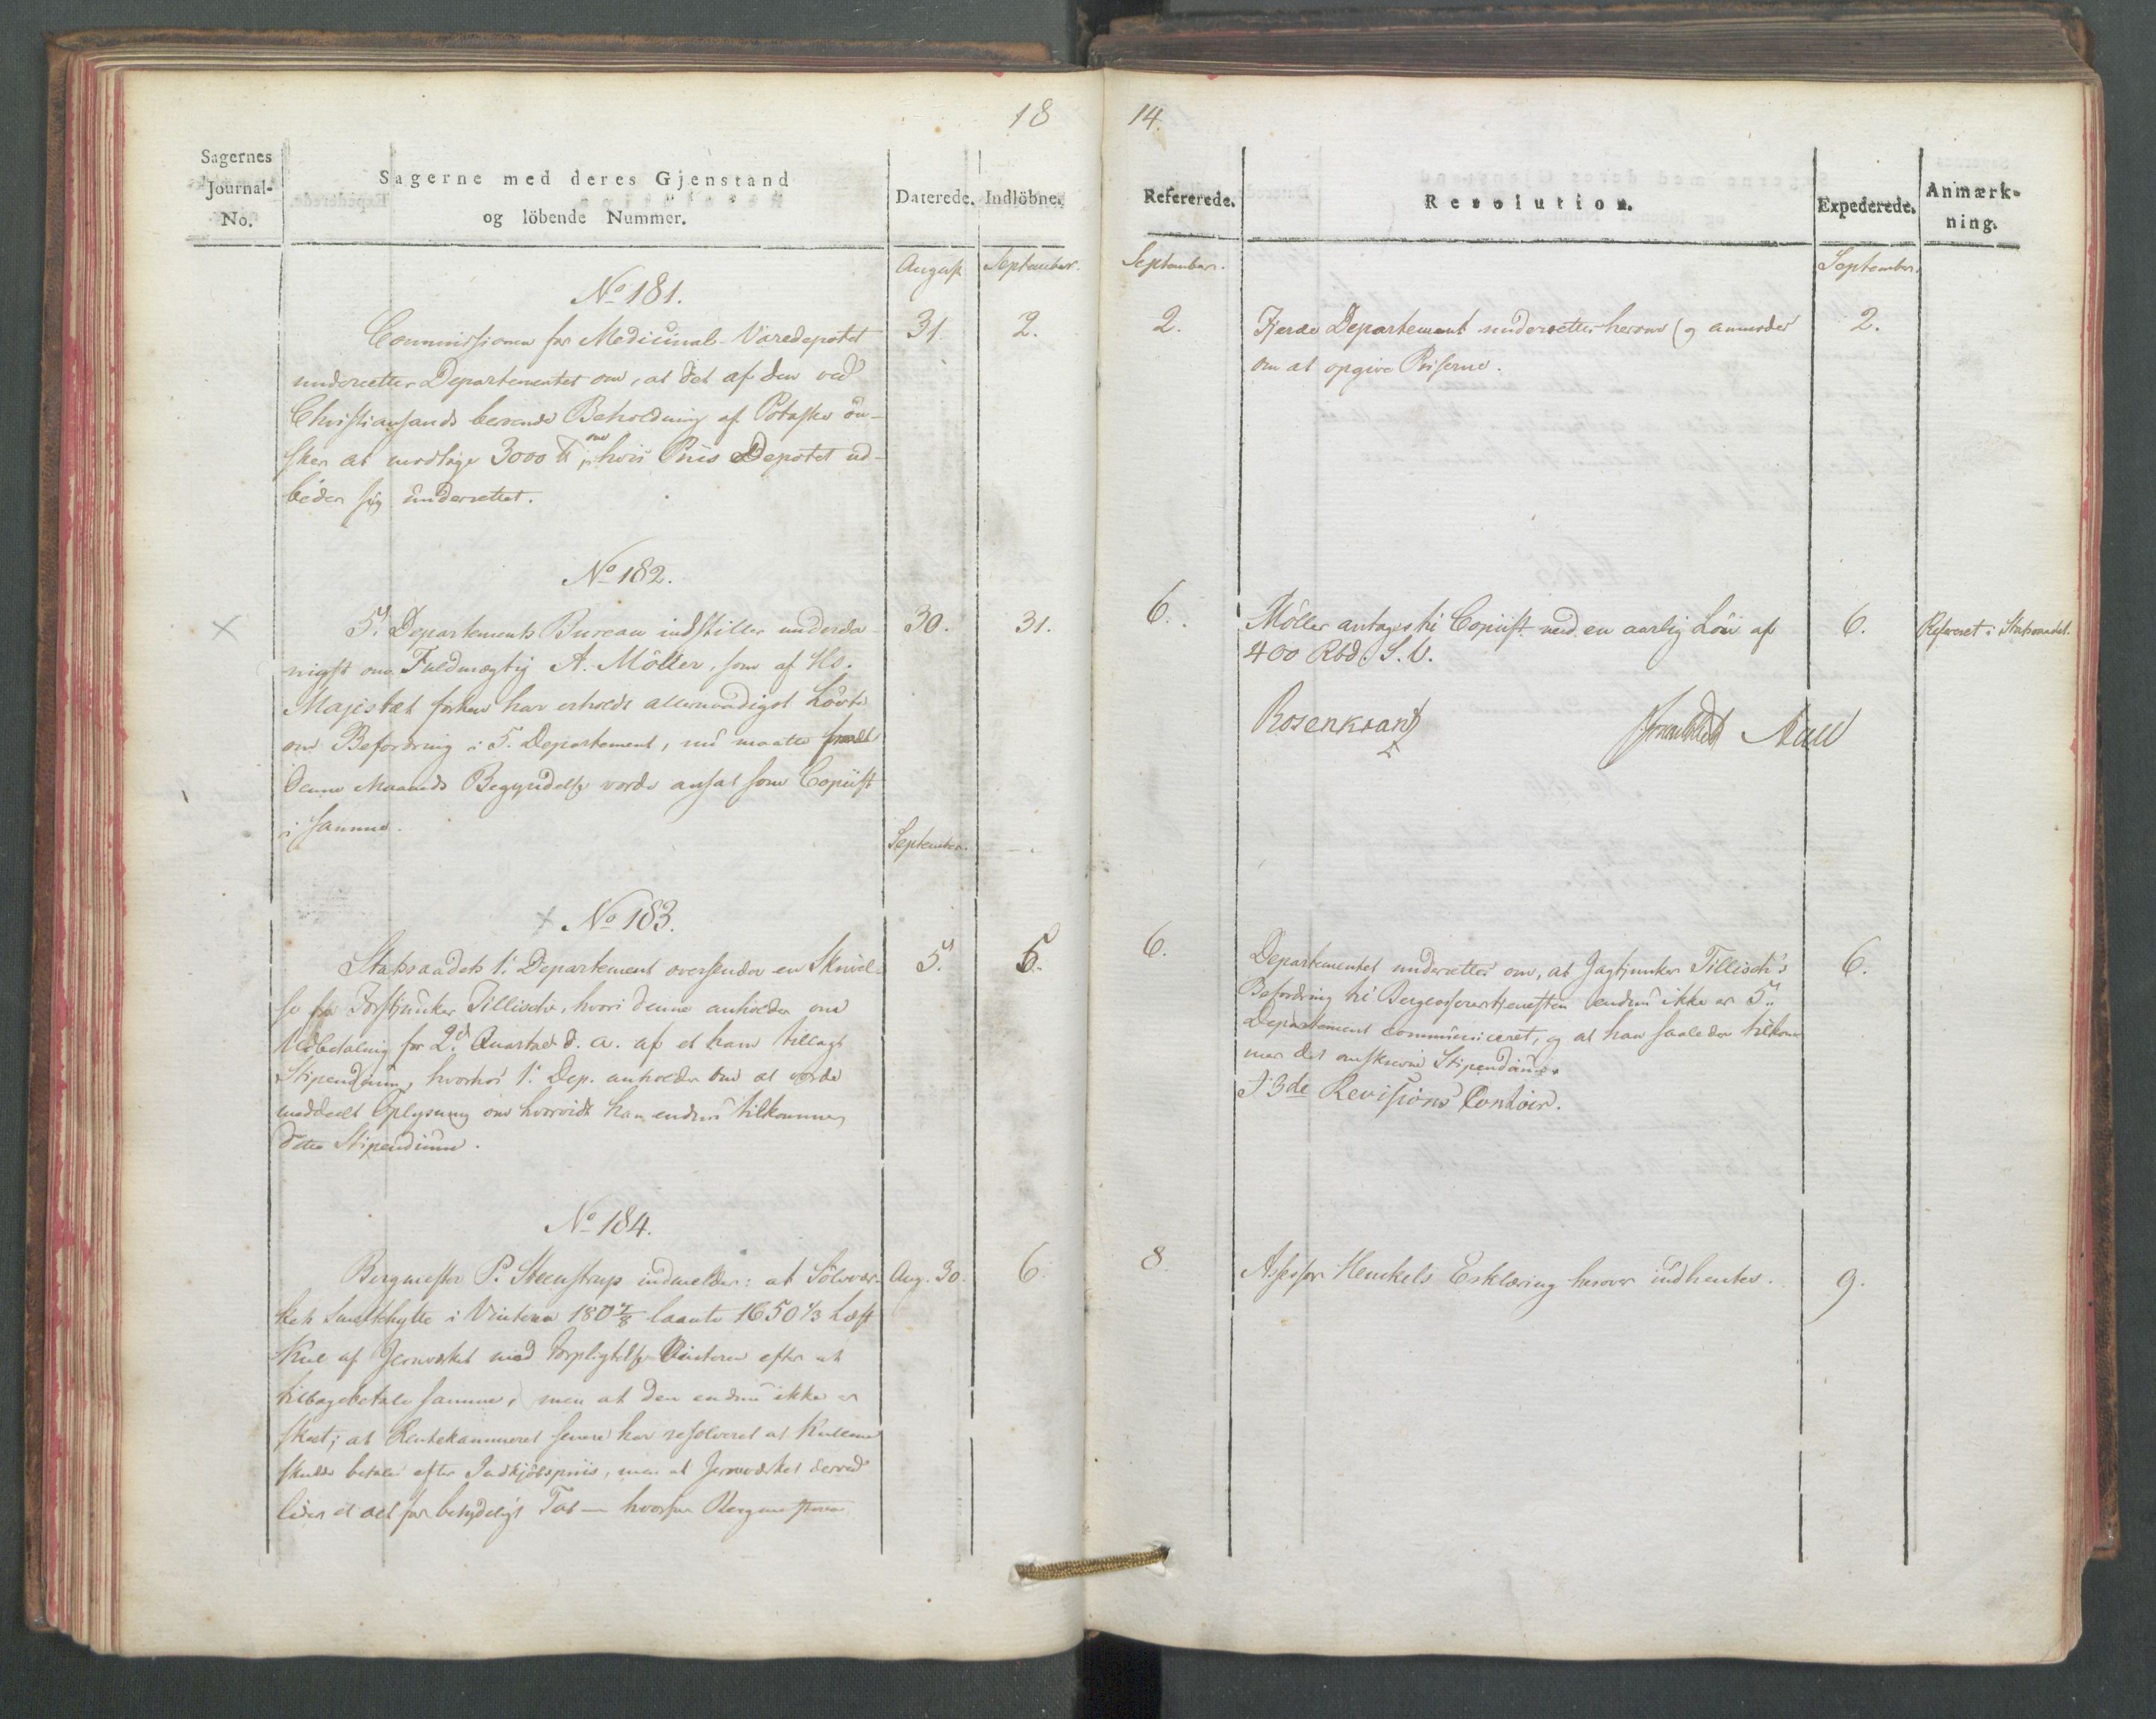 18
Sagernes
Journal-
No.
Sagerne med deres Gjenstand
og löbende Nummer.
Daterede.
Indlöbne.
August
September.
No 181.
Commissionen for Medicinal-Varedepotet
underretter Departementet om, at det af den ved
Christiansands beroende Beholdning af Potaske ön-
sker at modtage 3000 ℔, om hvis Priis Depotet ud-
beder sig underrettet.
31.
2.
No 182.
5te Departements Bureau indstiller underda-
nigst om Fuldmægtig A. Möller, som af Hs.
Majestæt forhen har erholdt allernaadigst Lövte
om Befordring i 5. Departement, nu maatte fra
denne Maaneds Begyndelse vorde ansat som Copiist
i samme.
30.
31.
September.
No 183.
Statsraadets 1. Departement oversender en Skrivel-
se fra Forstjunker Tillisch, hvori denne anholder om
Udbetaling for 2det Quartal d. a. af et ham tillagt
Stipendium, hvorhos 1. Dep. anholder om at vorde
meddeelt Oplysning om hvorvidt ham endnu tilkommer
dette Stipendium.
5.
5.
No 184.
Bergmester P. Steenstrup indmelder: at Sölvvær-
kets Smeltehytte i Vinteren 180 7/8 laante 1650 1/3 Læst
Kul af Jernværket med Forpligtelse Vinteren efter at
tilbagebetale samme, men at den endnu ikke er
skeet; at Rentekammeret senere har resolveret at Kullene
skulde betales efter Indkjöbspriis, men at Jernværket derved
lider et alt for betydeligt Tab — hvorfor Bergmesteren
Aug. 30.
6.
14.
Refererede.
Resolution.
Expederede.
Anmærk-
ning.
September.
September.
2.
Fjerde Departement underrettes herom og anmodes
om at opgive Priserne.
2.
6.
Möller antages til Copiist med en aarlig Lön af
400 Rbd. S. V.
Rosenkrantz
Aall
6.
Refereret i Statsraadet.
6.
Departementet underrettes om, at Jagtjunker Tillisch's
Befordring til endnu ikke er 5te
Departement communiceret, og at han saaledes tilkom-
mer det omskrevne Stipendium.
3de Revisions Contoir.
6.
8.
Assessor Henckels Erklæring herover indhentes.
9.